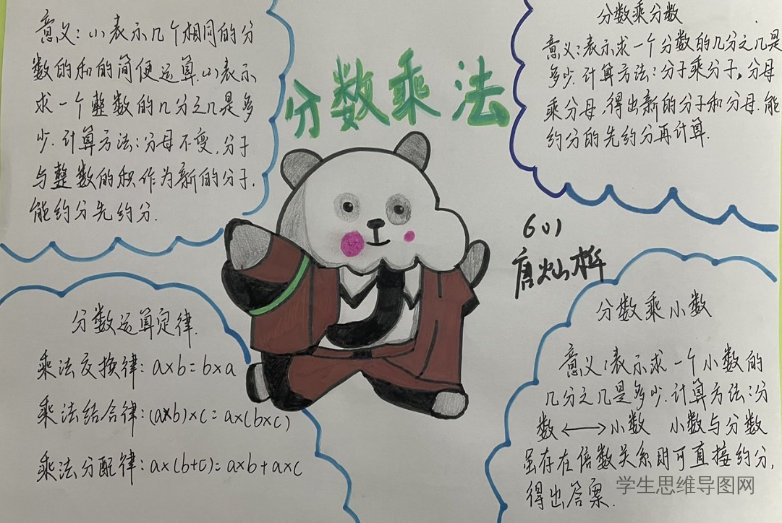 意义:小表示几个相同的分
数的和的简便运算.小表示
求一个整数的几分之几是多
少.计算方法:分母不变,分子
与整数的积作为新的分子,
能约分先约分.
分数乘法
分数乘分数
意义:表示求一个分数的几分之几是
多少.计算方法:分子乘分子,分母
乘分母,得出新的分子和分母.能
约分的先约分再计算.
601
唐灿桦
分数运算定律.
乘法交换律:a×b=b×a
乘法结合律:(a×b)×c=a×(b×c)
乘法分配律:a×(b+c)=a×b+a×c
分数乘小数
意义:表示求一个小数的
几分之几是多少.计算方法:分
数⟷小数 小数与分数
虽存在倍数关系时可直接约分,
得出答案.
学生思维导图网